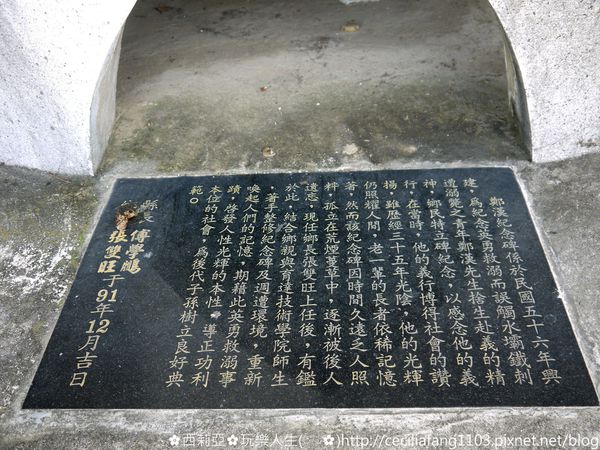 鄭漢紀念碑係於民國五十六年興
建,為紀念英勇救溺而誤觸水壩鐵刺
遭溺斃之青年鄭漢先生捨生赴義的精
神,鄉民特立碑紀念,以感念他的義
行,在當時,他的義行博得社會的讚
揚,雖歷經三十五年光陰,他的光輝
仍照耀人間,老一輩的長者依稀記憶
著,然而該紀念碑因時間久遠乏人照
料,孤立在荒煙蔓草中,逐漸被後人
遺忘,現任鄉長張雙旺上任後,有鑑
於此,結合鄉親與育達技術學院師生
,著手整修紀念碑及週遭環境,重新
喚起人們的記憶,期藉此英勇救溺事
蹟,啟發人性光輝的本性,導正功利
本位的社會,為後代子孫樹立良好典
範。
縣長 傅學鵬
張雙旺于91年12月吉日
✿西莉亞✿玩樂人生( ✿)http://ceciliafang1103.pixnet.net/blog